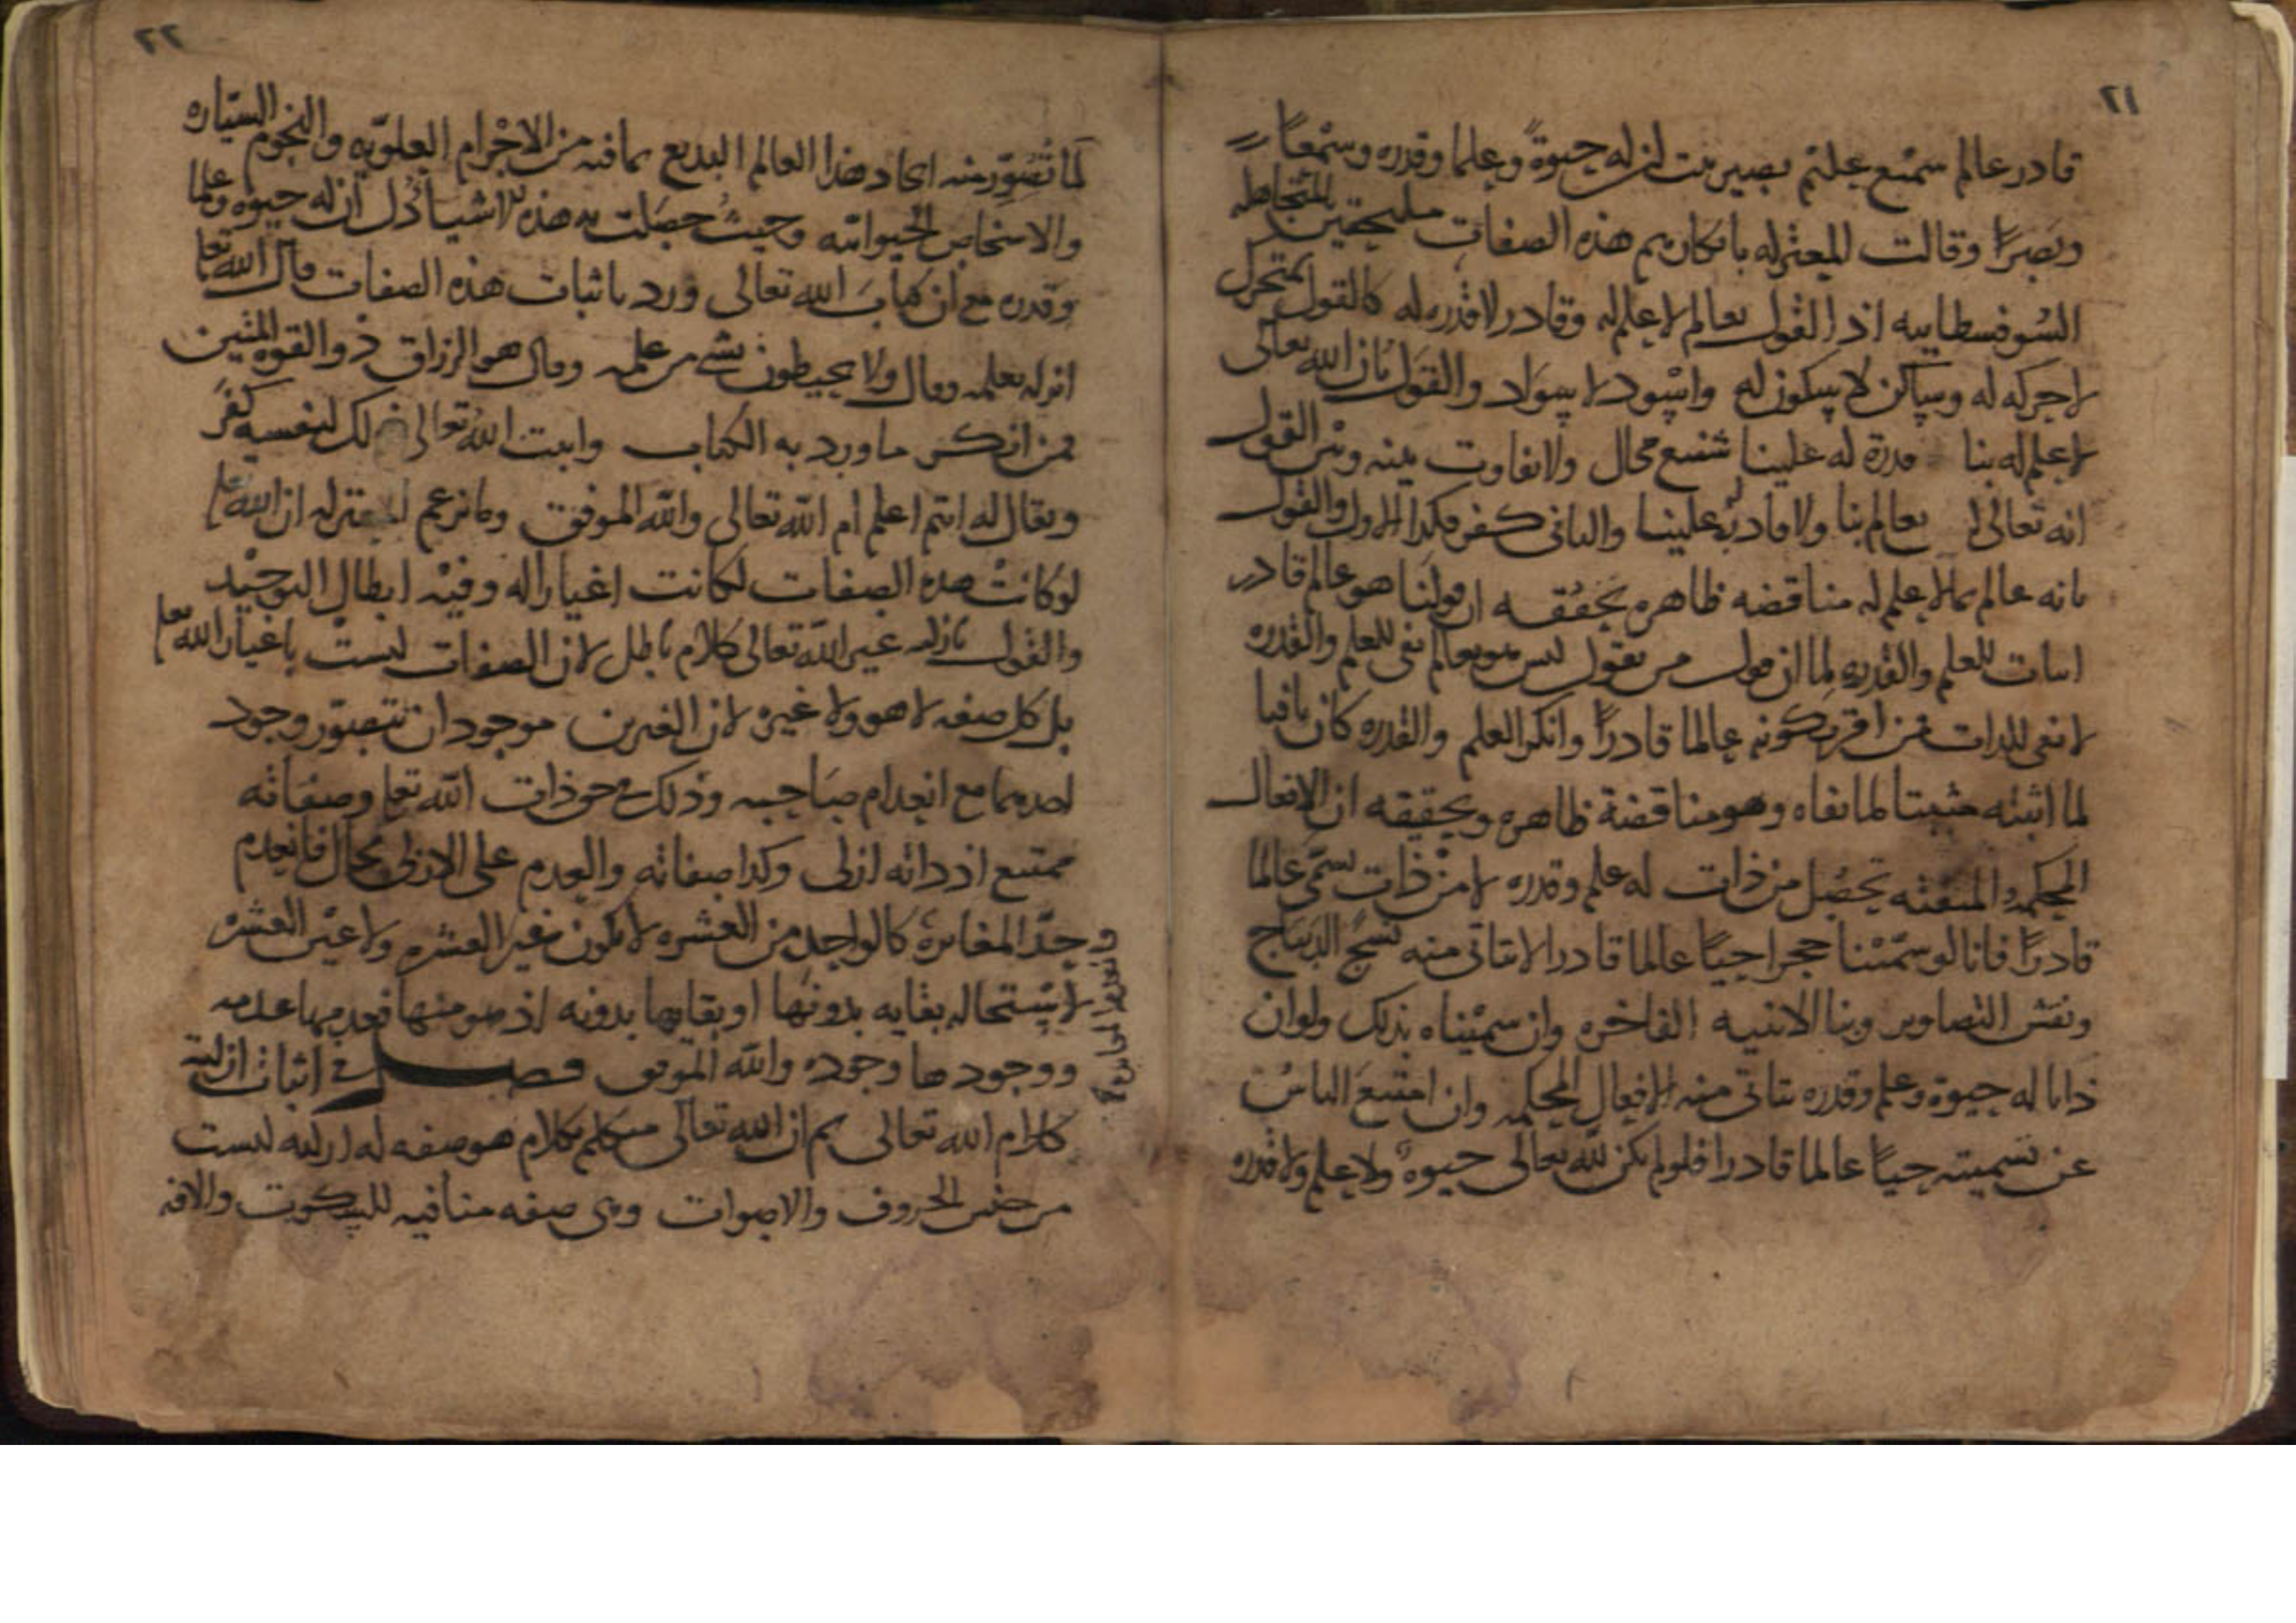 ٢١
قادر عالم سميع عليم بصير ثبت ان له حيوةً وعلما وقدره وسمعًا
وبصرًا وقالت المعتزله بانكارهم هذه الصفات ملتحقين بالمتجاهله
السوفسطاييه اذ القول بعالم لا علم له وقادر لا قدره له كالقول بمتحرك
لا حركه له وساكن لا سكون له واسود لا سواد والقول بان الله تعالى
لا علم له بنا قدرة له علينا شنيع محال ولا تفاوت بينه وبين القول
انه تعالى بعالم بنا ولا قادر علينا والثاني كفر فكذا الاول والقول
بانه عالم بما لا علم له مناقضه ظاهره تحققه ان قولنا هو عالم قادر
اثبات للعلم والقدره لما ان قول من يقول ليس هو بعالم نفي للعلم والقدره
لا نفي للذات فمن اقر بكونه عالما قادرًا وانكر العلم والقدره كان نافيا
لما اثبته مثبتا لما نفاه وهو مناقضة ظاهره ويحققه ان الافعال
المحكمه المتقنه تحصل من ذات له علم وقدره لا من ذات تسمى عالما
قادرًا فانا لو سمينا حجرا حيًا عالما قادرا لا يتاتى منه نسج الديباج
ونقش التصاوير وبنا الابنيه الفاخره وان سميناه بذلك ولو ان
ذاتا له حيوة وعلم وقدره يتاتى منه الافعال المحكمه وان امتنع الناس
عن تسميته حيًا عالما قادرا فلو لم يكن لله تعالى حيوة ولا علم ولا قدره
٢٢
لما تصور منه ايجاد هذا العالم البديع بما فيه من الاجرام العلويه والنجوم السياره
والاشخاص الحيوانيه وحيث حصلت به هذه الاشيا دل ان له حيوه وعلما
وقدره مع ان كتاب الله تعالى ورد باثبات هذه الصفات قال الله تعا
انزله بعلمه وقال ولا يحيطون بشي من علمه وقال هو الرزاق ذو القوه المتين
فمن انكر ما ورد به الكتاب واثبت الله تعالى ذلك لنفسه كفر
ويقال له انتم اعلم ام الله تعالى والله الموفق وما تزعم المعتزله ان الله تعا
لو كانت هذه الصفات لكانت اغيارا له وفيه ابطال التوحيد
والقول بازليه غير الله تعالى كلام باطل لان الصفات ليست باغيار الله تعا
بل كل صفه لا هو ولا غيره لان الغيرين موجودان تتصور وجود
احدهما مع انعدام صاحبه وذلك في حق ذات الله تعا وصفاته
ممتنع اذ ذاته ازلي وكذا صفاته والعدم على الازلي محال فانعدم
حدّ المغايرة كالواحد من العشره لا يكون غير العشره ولا عين العشره
لاستحاله بقايه بدونها او بقايها بدونه اذ هو منها فعدمها عدمه
ووجودها وجوده والله الموفق فصل في اثبات ازلية
كلام الله تعالى ثم ان الله تعالى متكلم بكلام هو صفه له ازليه ليست
من جنس الحروف والاصوات وهي صفه منافيه للسكوت والافه